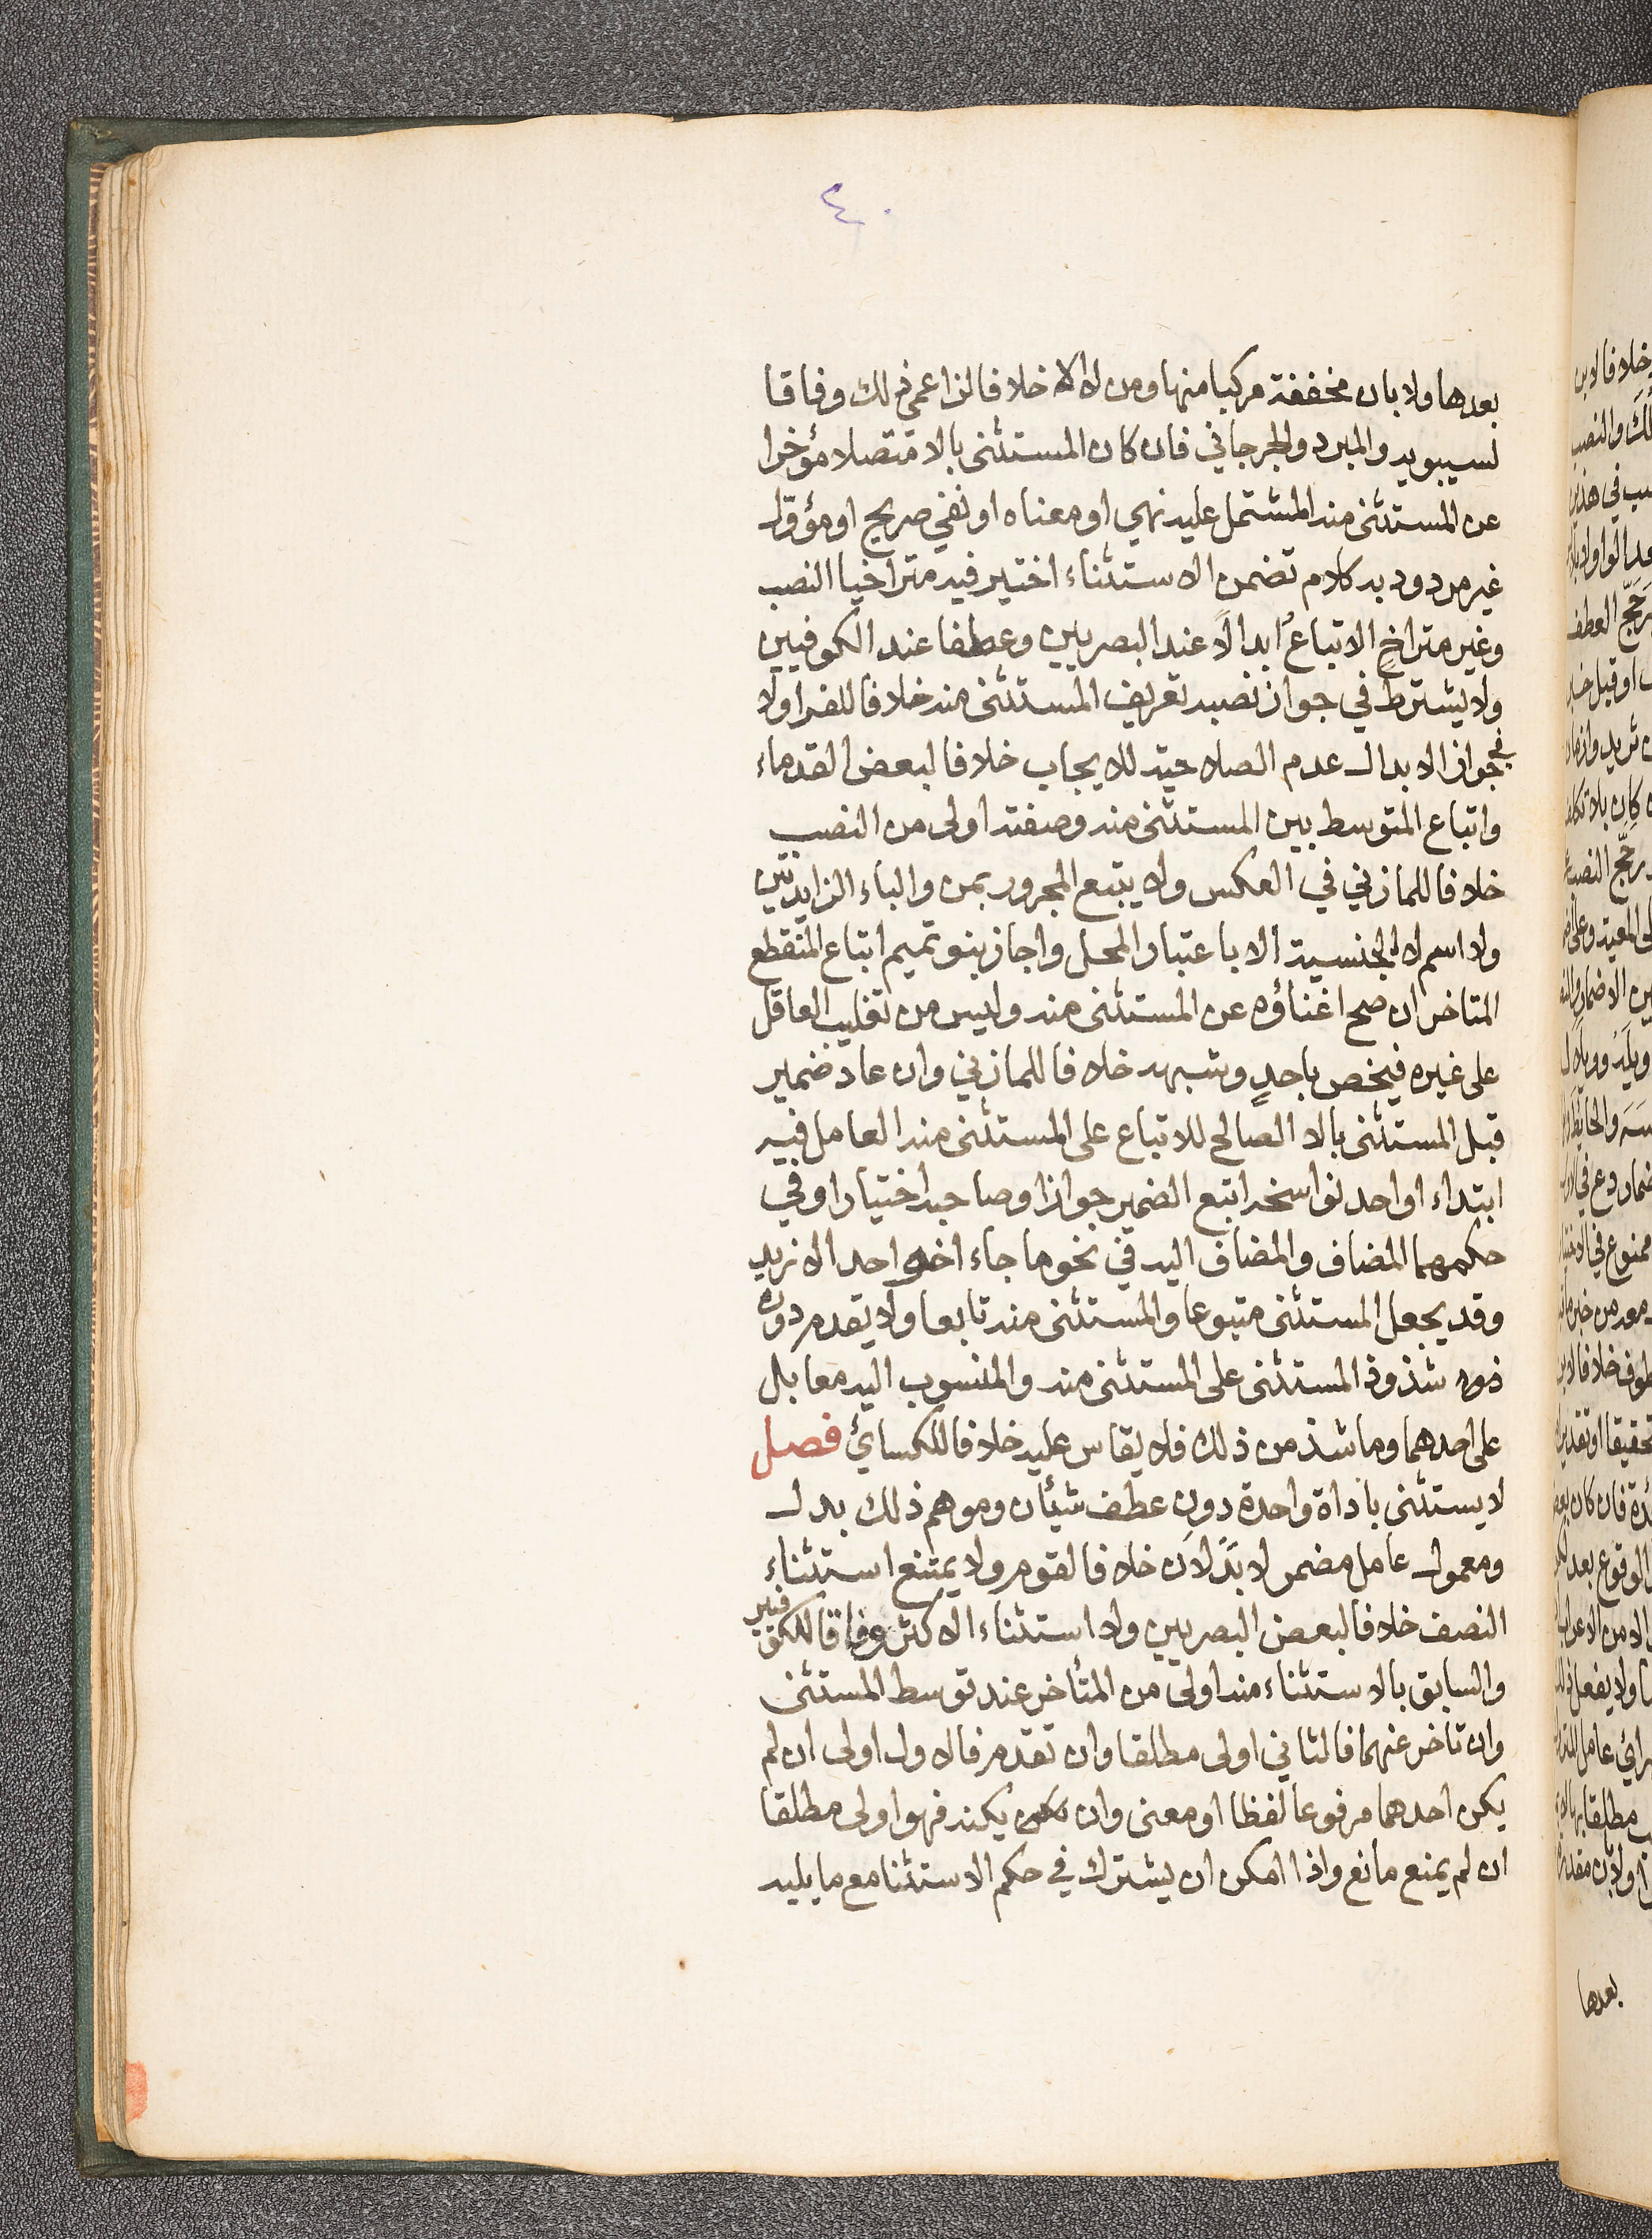 ٤٠
بعدها ولا بان مخففة مركبا منها ومن لا الا خلافا لزاعمي ذلك وفاقا
لسيبويه والمبرد والجرجاني فان كان المستثنى بالا متصلا مؤخرا
عن المستثنى منه المشتمل عليه نهي او معناه او نفي صريح او مؤول
غير مردود به كلام تضمن الاستثناء اختير فيه متراخيا النصب
وغير متراخٍ الاتباعُ ابدالاً عند البصريين وعطفا عند الكوفيين
ولا يشترط في جواز نصبه تعريف المستثنى منه خلافا للفرا ولا
في جواز الابدال عدم الصلاحية للايجاب خلافا لبعض القدماء
واتباع المتوسط بين المستثنى منه وصفته اولى من النصب
خلافا للمازني في العكس ولا يتبع المجرور بمن والباء الزايدتين
ولا اسم لا الجنسية الا باعتبار المحل واجاز بنو تميم اتباع المنقطع
المتاخر ان صح اغناؤه عن المستثنى منه وليس من تغليب العاقل
على غيره فيخص باحدٍ وشبهه خلافا للمازني وان عاد ضمير
قبل المستثنى بالا الصالح للاتباع على المستثنى منه العامل فيه
ابتداء او احد نواسخه اتبع الضمير جوازا وصاحبه اختيارا وفي
حكمهما المضاف والمضاف اليه في نحو ما جاء اخو احد الا زيد
وقد يجعل المستثنى متبوعا والمستثنى منه تابعا ولا يقدم دون
شذوذ المستثنى على المستثنى منه والمنسوب اليه معا بل
على احدهما وما شذ من ذلك فلا يقاس عليه خلافا للكسائي فصل
لا يستثنى باداة واحدة دون عطف شيئان وموهم ذلك بدل
ومعمول عامل مضمر لا بدلان خلافا لقوم ولا يمتنع استثناء
النصف خلافا لبعض البصريين ولا استثناء الاكثر وفاقا للكوفيين
والسابق بالاستثناء منه اولى من المتأخر عند توسط المستثنى
وان تاخر عنهما فالثاني اولى مطلقا وان تقدم فالاول اولى ان لم
يكن احدهما مرفوعا لفظا او معنى وان يكنه فهو اولى مطلقا
ان لم يمنع مانع واذا امكن ان يشترك في حكم الاستثنا مع ما يليه
بعدها